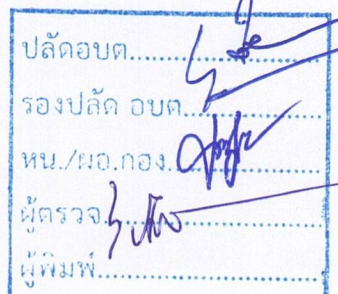 ปลัดอบต..............
รองปลัด อบต..............
หน./ผอ.กอง..............
ผู้ตรวจ..............
ผู้พิมพ์..............